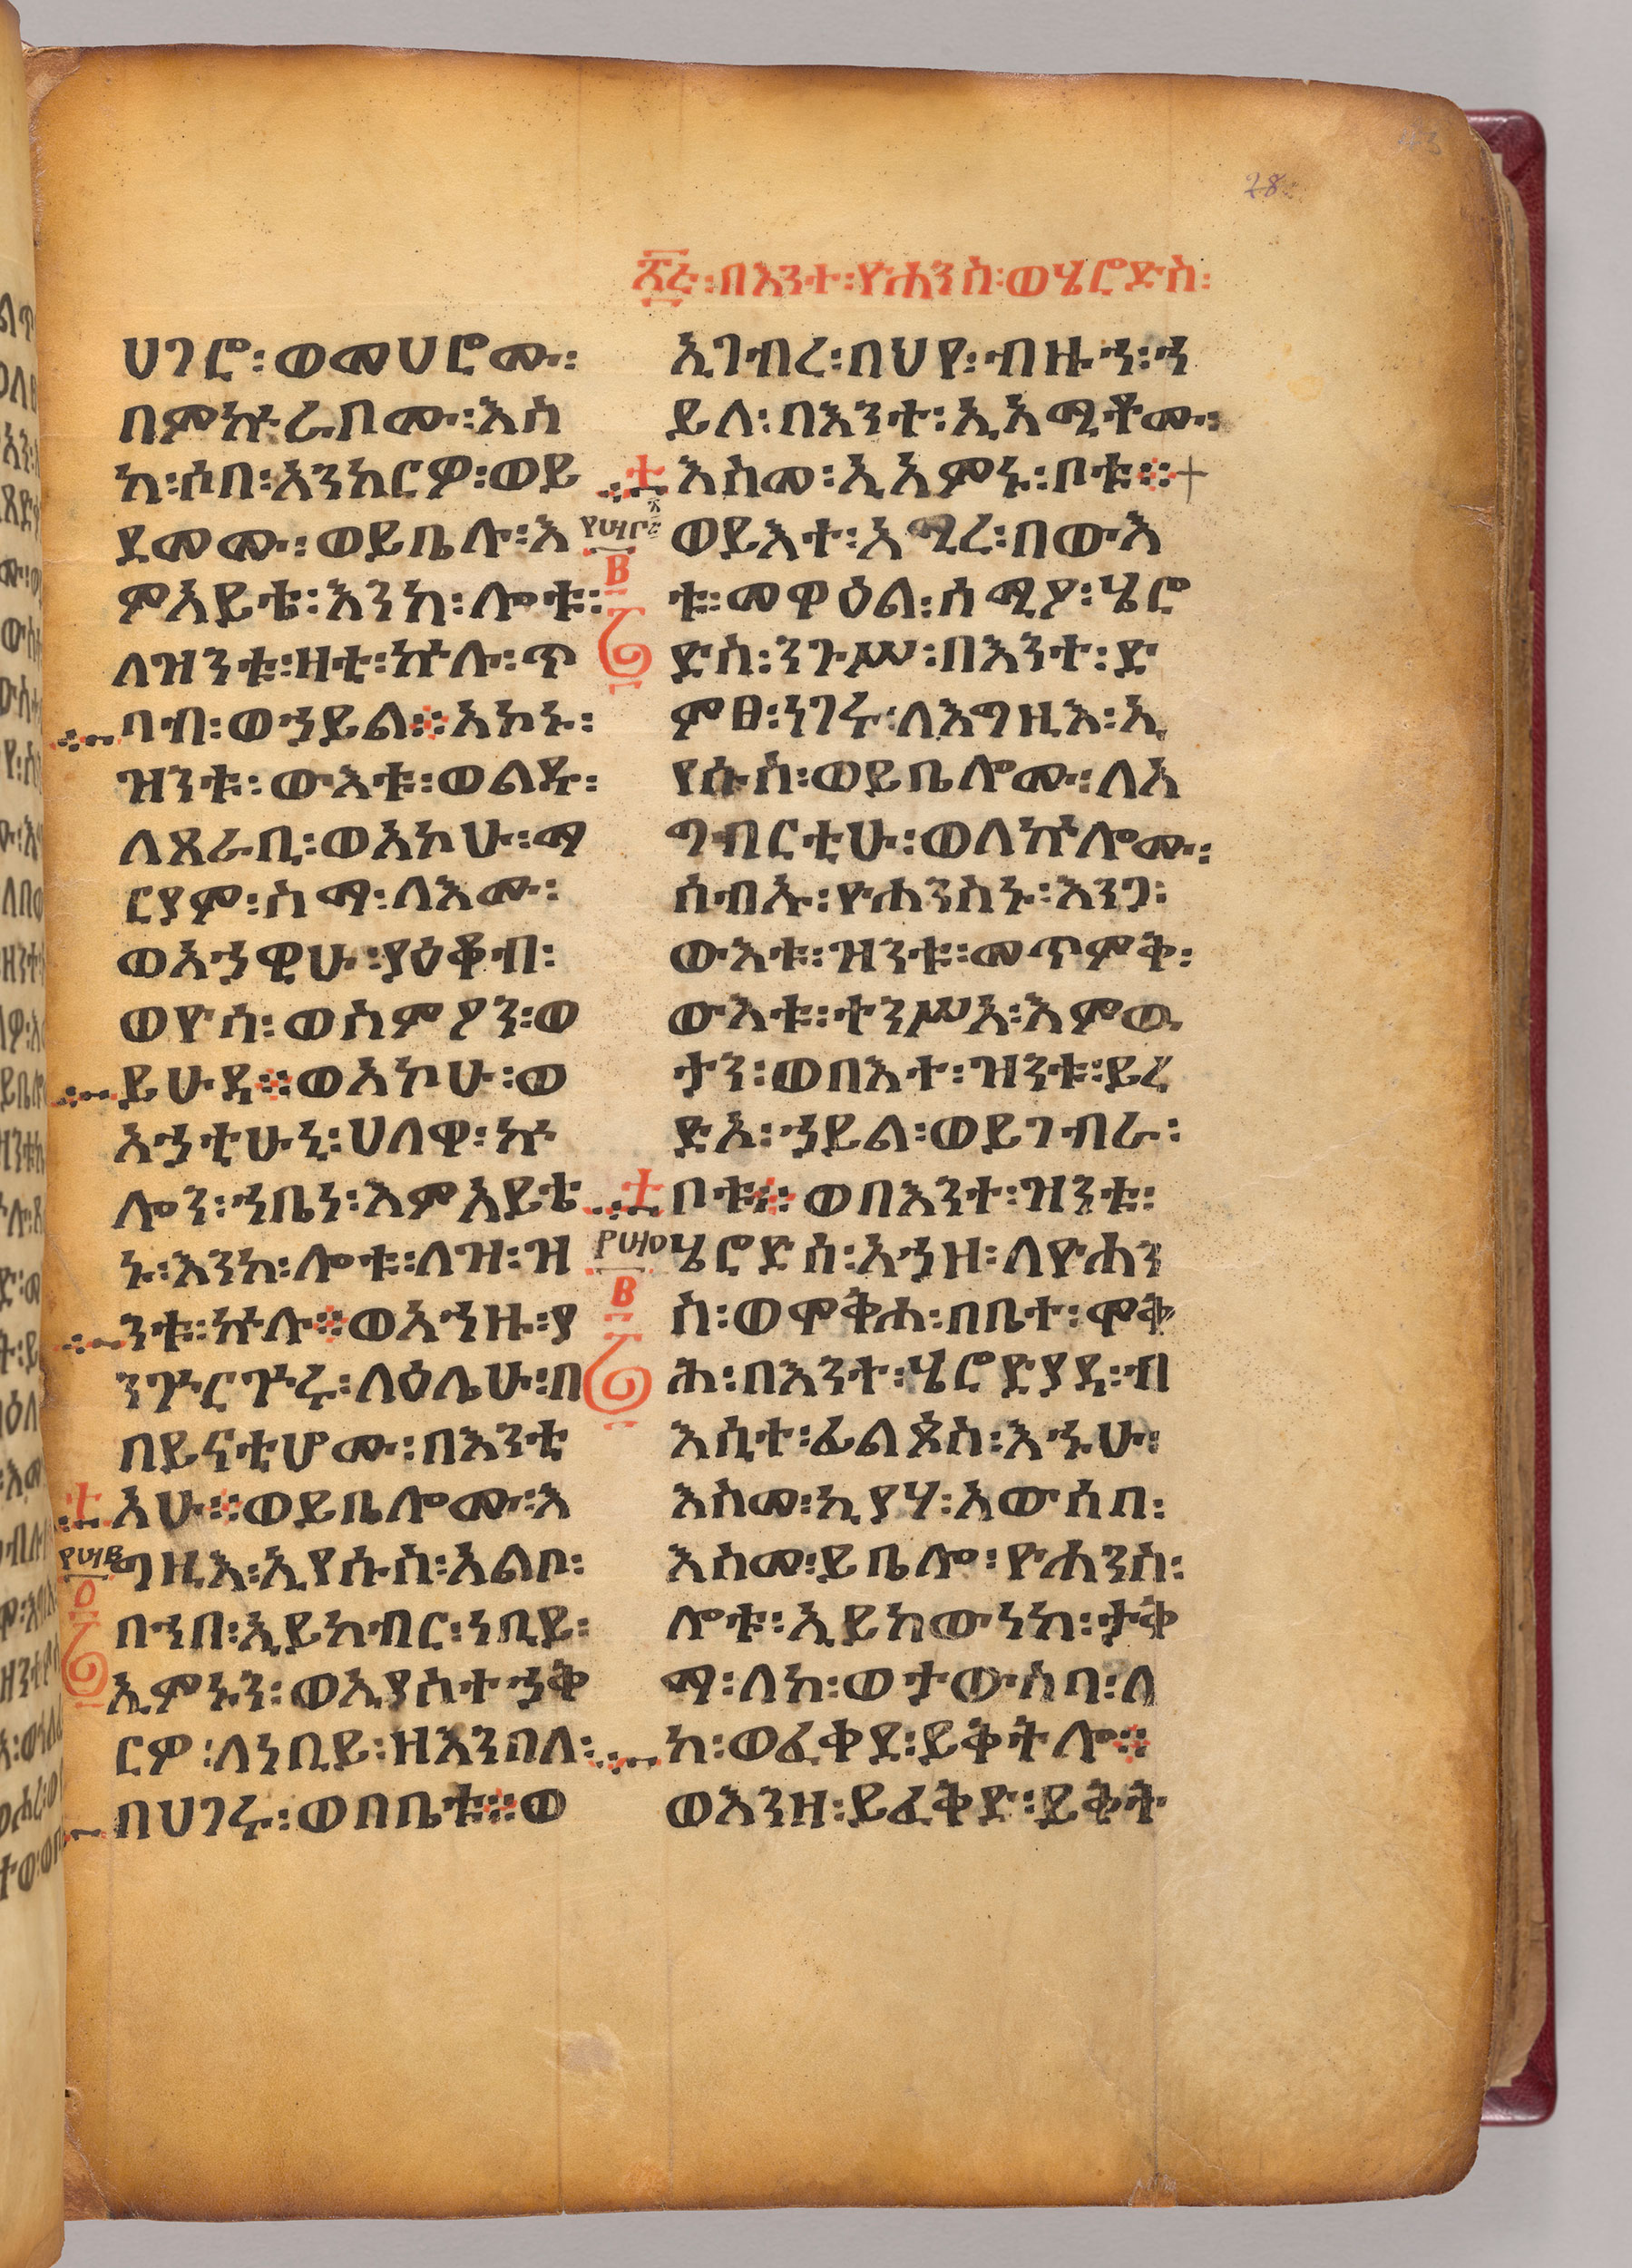 28
፳፭፡በእንተ፡ዮሐንስ፡ወሄሮድስ፡
ሀገሮ፡ወመሀሮሙ፡
በምኵራቦሙ፡እስ
ከ፡ሶበ፡አንከርዎ፡ወይ
ደመሙ፡ወይቤሉ፡እ
ምአይቴ፡እንከ፡ሎቱ፡
ለዝንቱ፡ዘቲ፡ኵሉ፡ጥ
ባብ፡ወኃይል፨አኮኑ፡
ዝንቱ፡ውእቱ፡ወልዱ፡
ለጸራቢ፡ወአኮሁ፡ማ
ርያም፡ስማ፡ለእሙ፡
ወአኃዊሁ፡ያዕቆብ፡
ወዮሳ፡ወስምዖን፡ወ
ይሁዳ፨ወአኮሁ፡ወ
አኃቲሁኒ፡ሀለዋ፡ኵ
ሎን፡ኀቤነ፡እምአይቴ
ኑ፡እንከ፡ሎቱ፡ለዝ፡ዝ
ንቱ፡ኵሉ፨ወአኀዙ፡ያ
ንጐርጕሩ፡ለዕሌሁ፡በ
በይናቲሆሙ፡በእንቲ
አሁ፨ወይቤሎሙ፡እ
ግዚእ፡ኢየሱስ፡አልቦ፡
በኀበ፡ኢይከብር፡ነቢይ፡
ኢምኑን፡ወኢያስተኃቅ
ርዎ፡ለነቢይ፡ዘእንበለ፡
በሀገሩ፡ወበቤቱ፨ወ
ኢገብረ፡በህየ፡ብዙኀ፡ኀ
ይለ፡በእንተ፡ኢአሚኖሙ፡
እስመ፡ኢአምኑ፡ቦቱ፨
ወይእተ፡አሚረ፡በውእ
ቱ፡መዋዕል፡ሰሚዖ፡ሄሮ
ድስ፡ንጉሥ፡በእንተ፡ድ
ምፀ፡ነገሩ፡ለእግዚእ፡ኢ
የሱስ፡ወይቤሎሙ፡ለአ
ግብርቲሁ፡ወለኵሎሙ፡
ሰብኡ፡ዮሐንስኑ፡እንጋ፡
ውእቱ፡ዝንቱ፡መጥምቅ፡
ውእቱ፡ተንሥአ፡እምዉ
ታን፡ወበእተ፡ዝንቱ፡ይረ
ድአ፡ኃይል፡ወይገብራ፡
ቦቱ፨ወበእንተ፡ዝንቱ፡
ሄሮድሰ፡አኃዘ፡ለዮሐን
ስ፡ወሞቅሐ፡በቤተ፡ሞቅ
ሕ፡በእንተ፡ሄሮድያዳ፡ብ
እሲተ፡ፊልጶስ፡እኁሁ፡
እስመ፡ኪያሃ፡አውሰበ፡
እስመ፡ይቤሎ፡ዮሐንስ፡
ሎቱ፡ኢይከውነከ፡ታቅ
ማ፡ለከ፡ወታውስባ፡ለ
ከ፡ወፈቀደ፡ይቅትሎ፨
ወእንዘ፡ይፈቅድ፡ይቅት